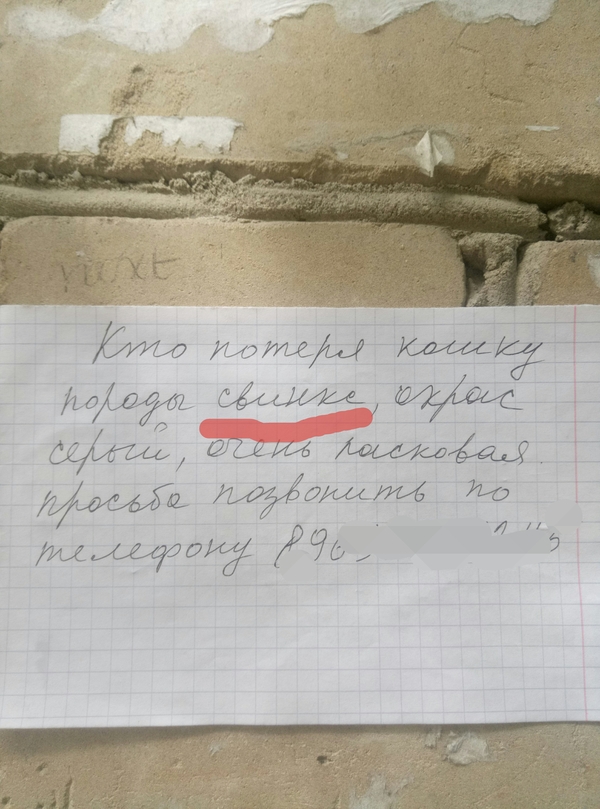 Кто потеря кошку
породы свинкс, охрас
серый, очень ласковая.
просьба позвонить по
телефону 896